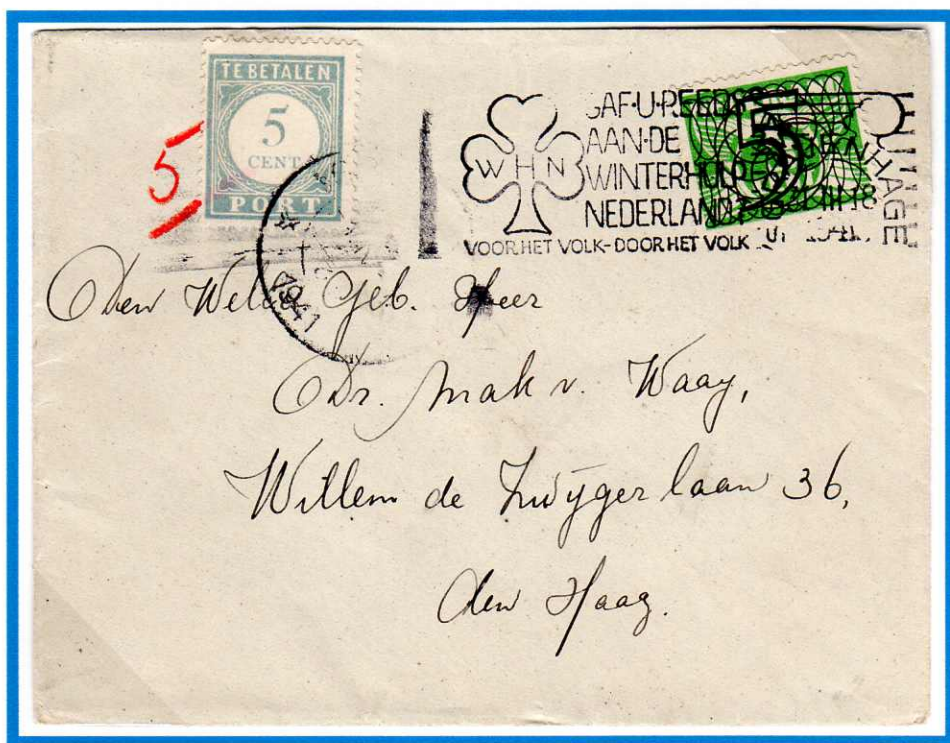 TE BETALEN
5
CENT
PORT
5
W H N
GAF·U·REEDS
AAN·DE
WINTERHULP
NEDERLAND?
VOOR HET VOLK-DOOR HET VOLK
5
21 III 18
1941
HAGE
1941
Den Weled. Geb. Heer
Dr. Mak v. Waay,
Willem de Zwijgerlaan 36,
den Haag.